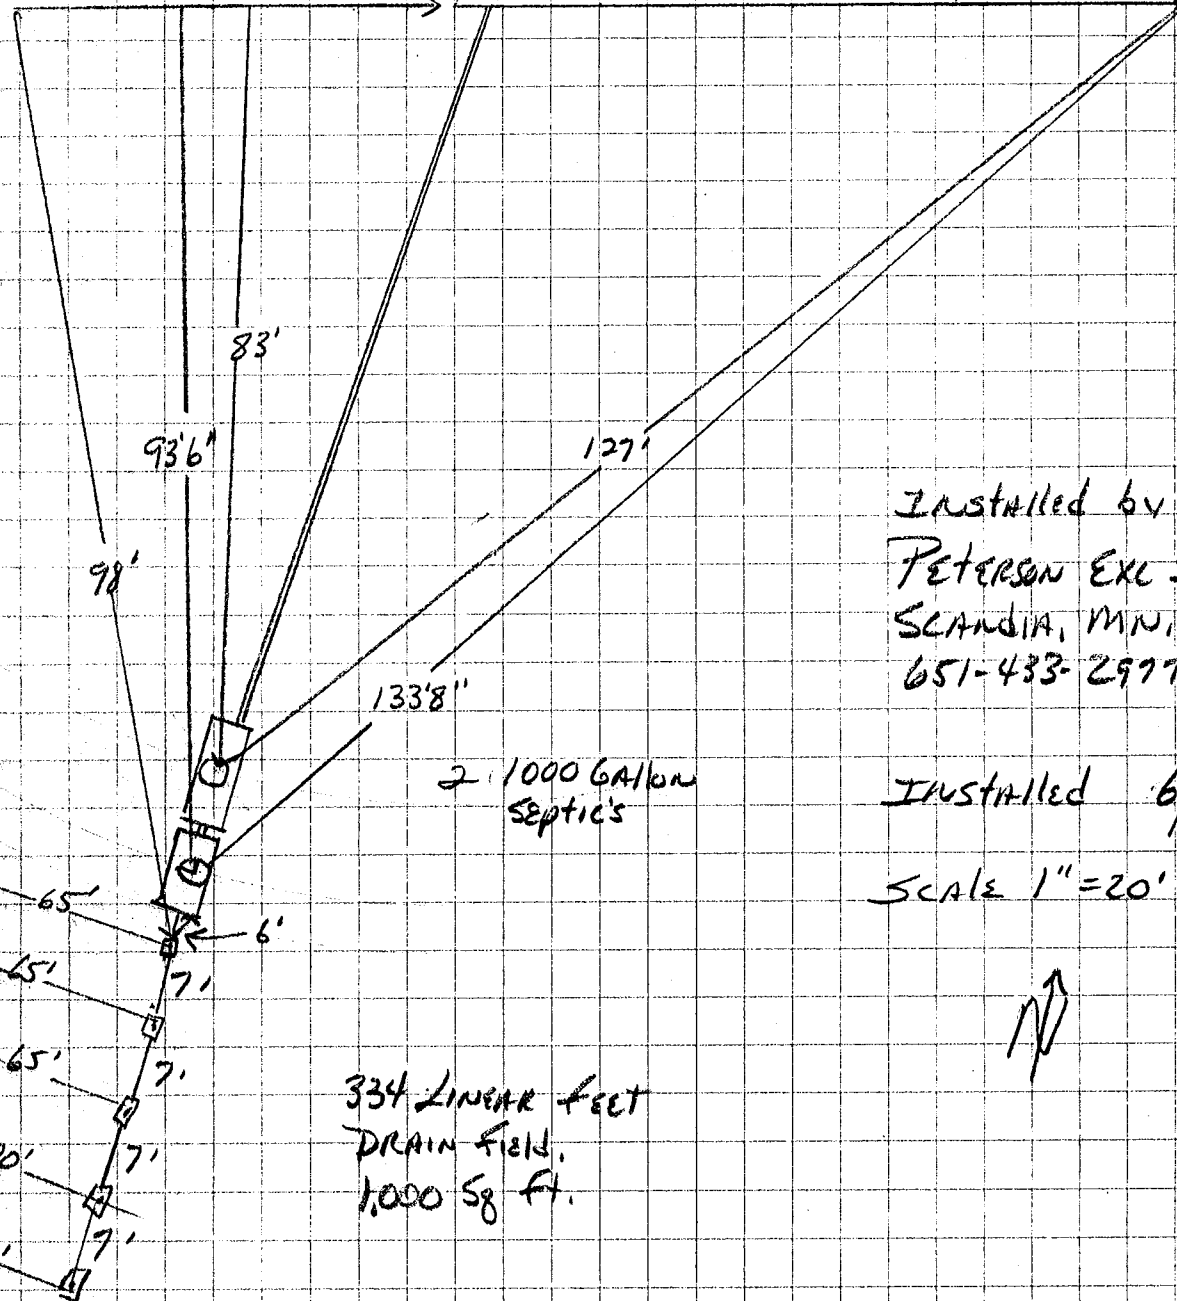 83'
93'6"
127'
98'
Installed by
PETERSON EXC
SCANDIA, MN.
651-433-2977
133'8"
2 1000 GAllON
SEPTIC'S
INSTAllEd 6
SCALE 1"=20'
65'
6'
7'
65'
7'
65'
7'
7'
N
334 LINEAR FEET
DRAIN FIELD.
1,000 Sq ft.